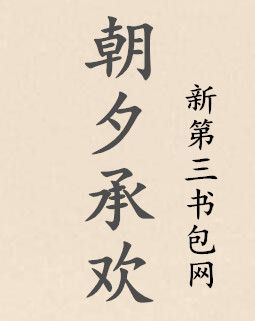 朝夕承欢
新第三书包网